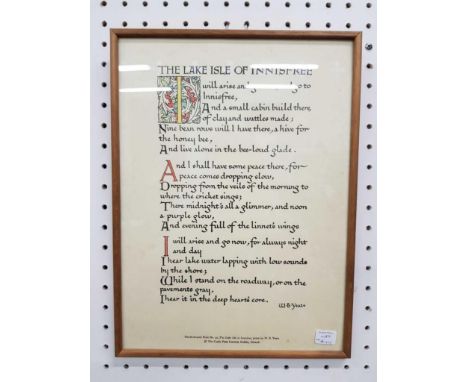 THE LAKE ISLE OF INNISFREE
I will arise and go now, and go to
Innisfree,
And a small cabin build there,
of clay and wattles made;
Nine bean rows will I have there, a hive for
the honey bee,
And live alone in the bee-loud glade.
And I shall have some peace there, for
peace comes dropping slow,
Dropping from the veils of the morning to
where the cricket sings;
There midnight's all a glimmer, and noon
a purple glow,
And evening full of the linnet's wings
I will arise and go now, for always night
and day
I hear lake water lapping with low sounds
by the shore;
While I stand on the roadway, or on the
pavements gray,
I hear it in the deep heart's core.
W·B·Yeats
The Lake Isle of Innisfree, poem by W. B. Yeats